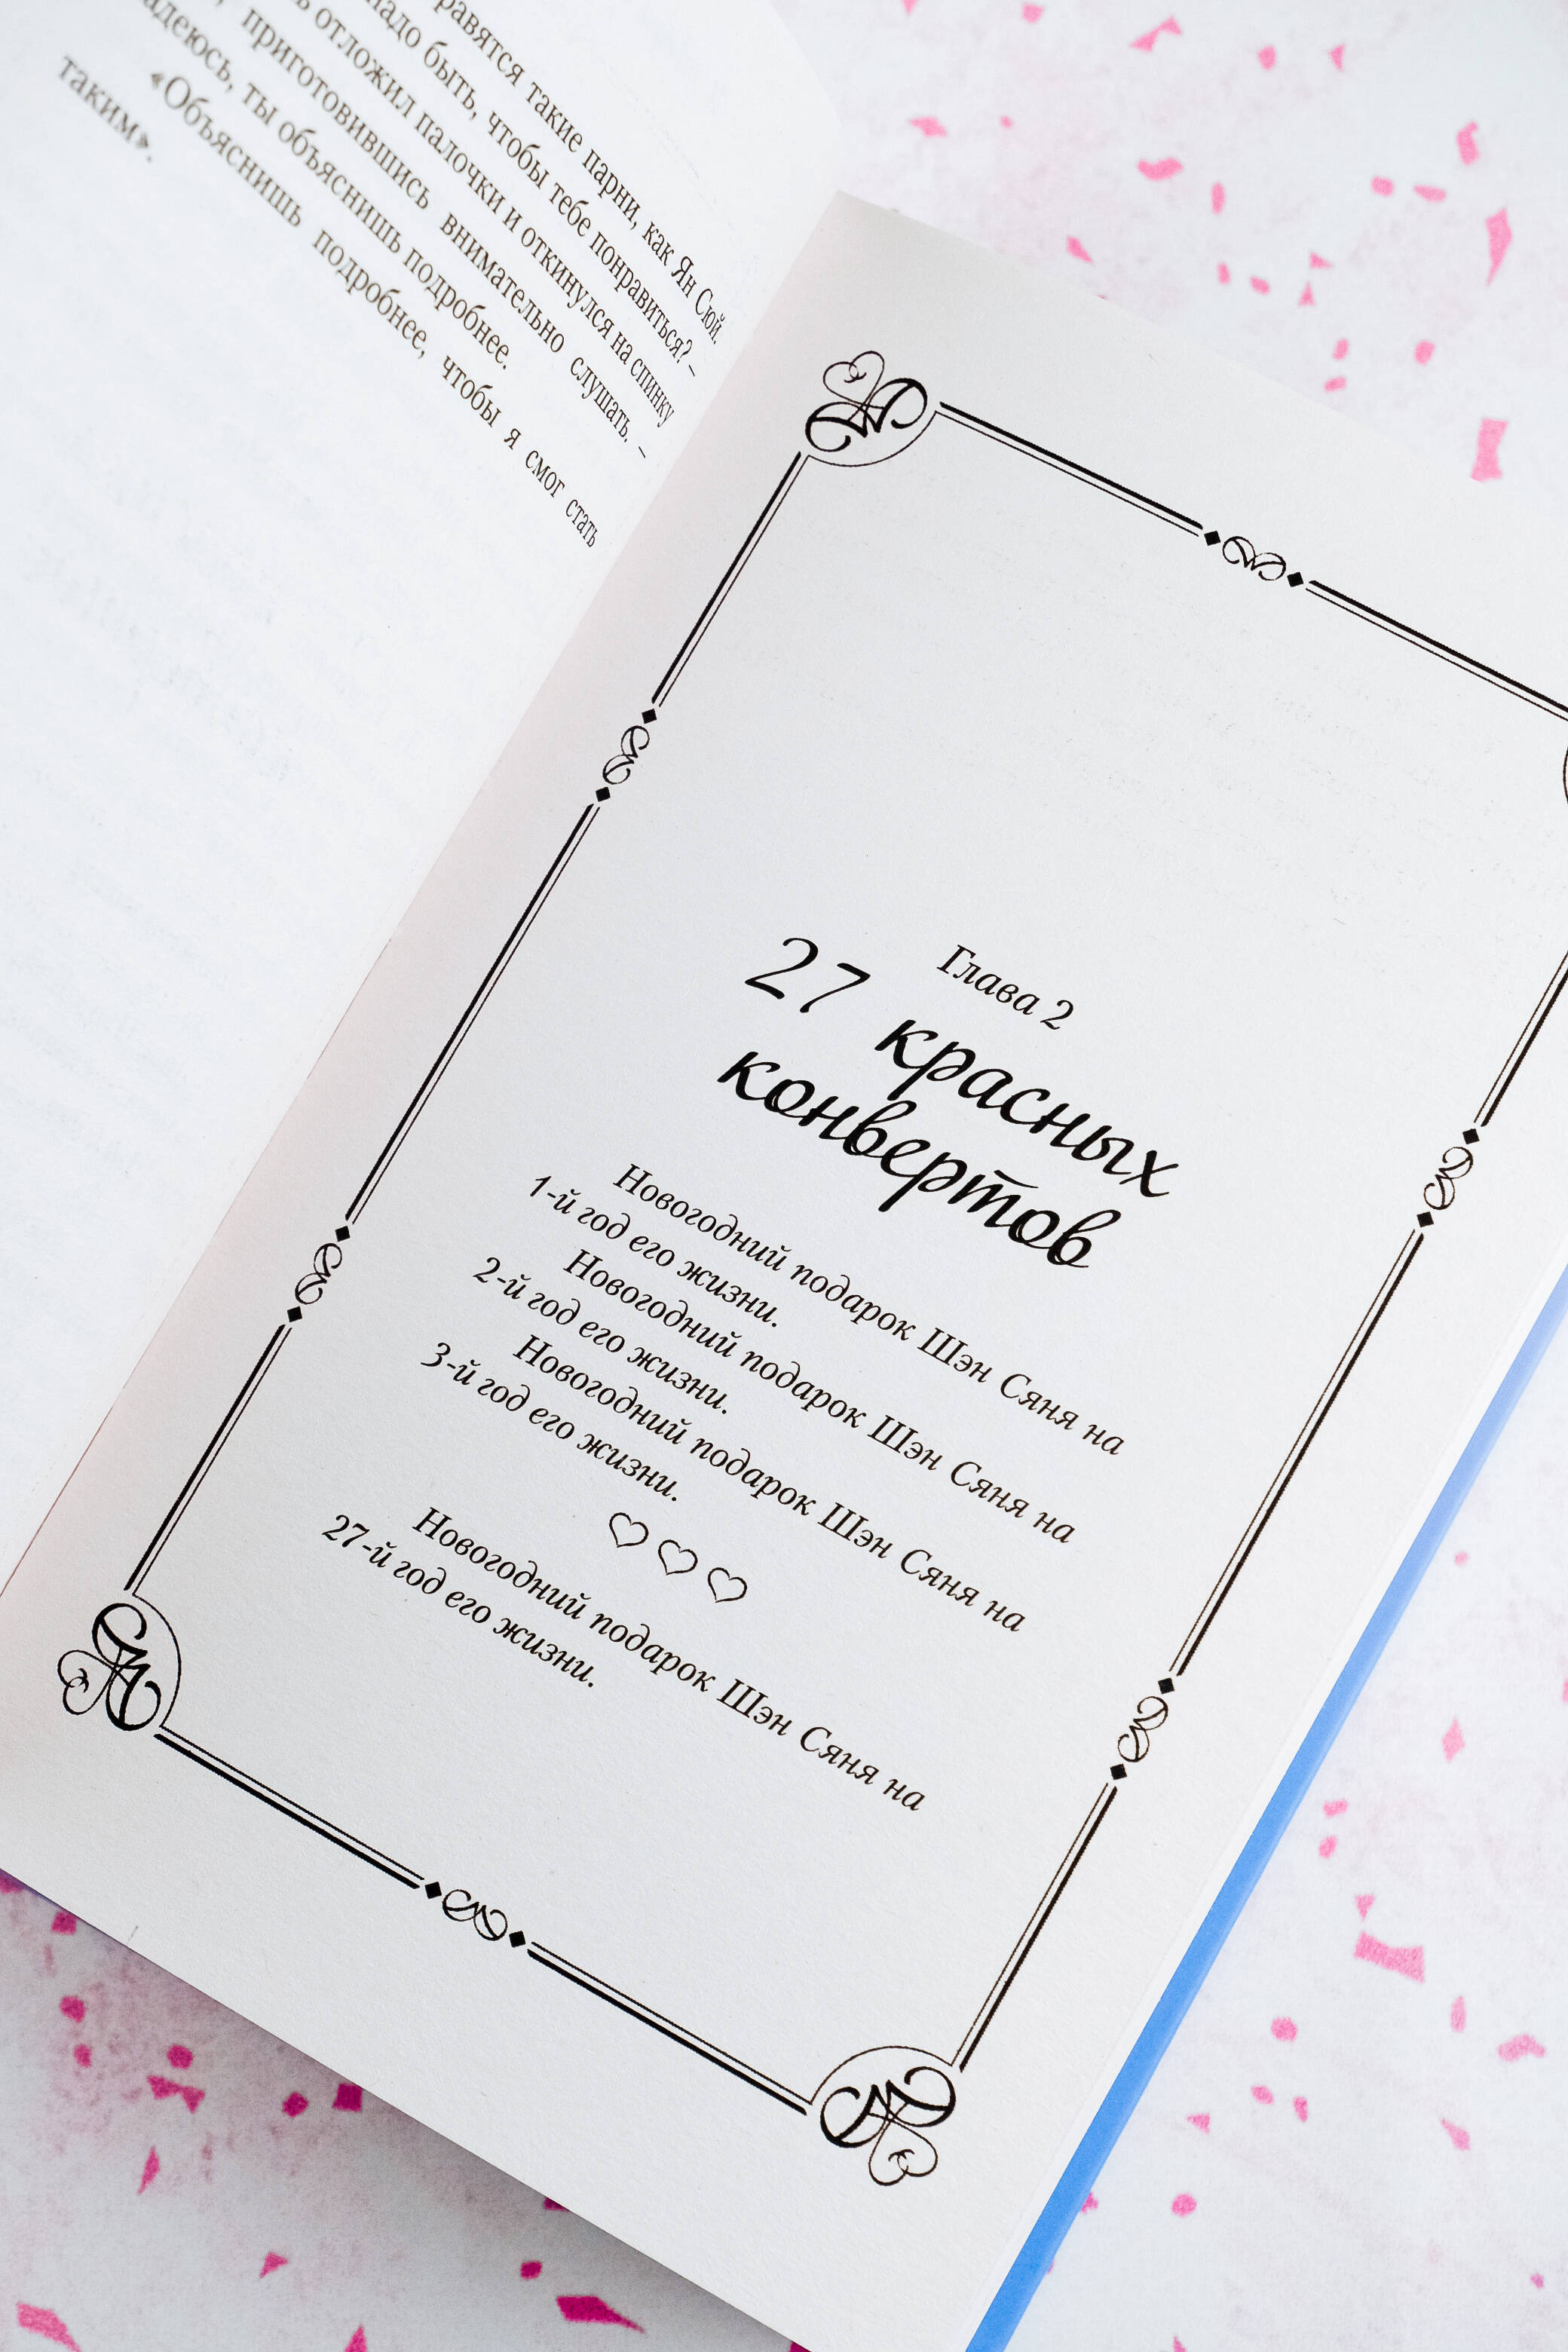 такие парни, как Ян Сюй.
надо быть, чтобы тебе понравиться? –
отложил палочки и откинулся на спинку
приготовившись внимательно слушать. –
ты объяснишь подробнее.
«Объяснишь подробнее, чтобы я смог стать
таким».
Глава 2
27 красных
конвертов
Новогодний подарок Шэн Сяня на
1-й год его жизни.
Новогодний подарок Шэн Сяня на
2-й год его жизни.
Новогодний подарок Шэн Сяня на
3-й год его жизни.
Новогодний подарок Шэн Сяня на
27-й год его жизни.